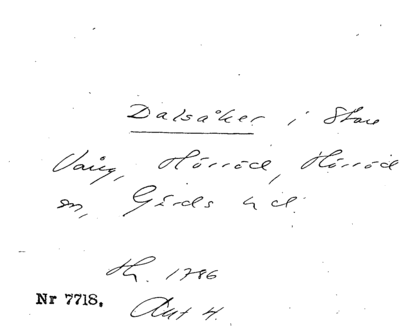 Dalsåker i Stora
Vång, Hörröd, Hörröd
sn, Gärds hd.
Sk. 1786
Nr 7718. Akt 4.